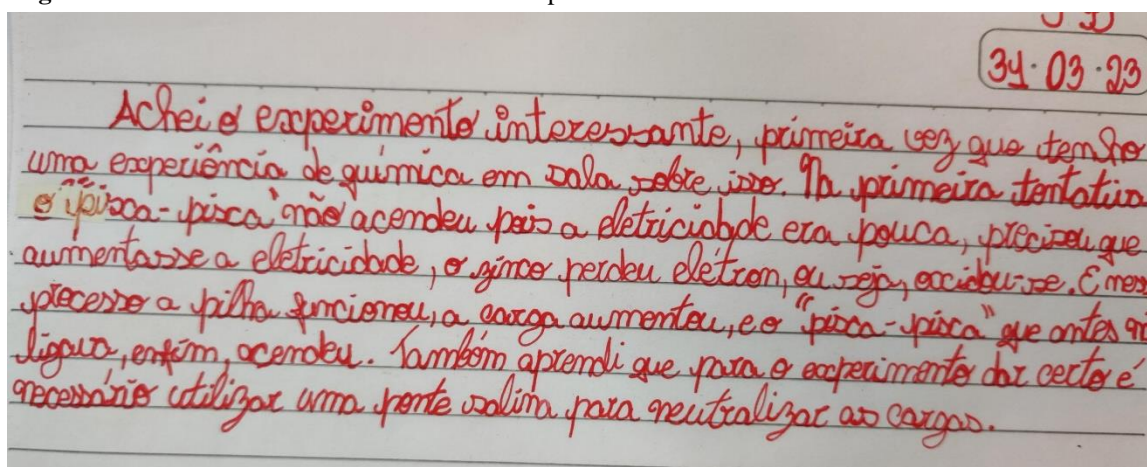 31.03.23
Achei o experimento interessante, primeira vez que tenho
uma experiência de química em sala sobre isso. Na primeira tentativa
o "pisca-pisca" não acendeu pois a eletricidade era pouca, precisou que
aumentasse a eletricidade, o zinco perdeu elétron, ou seja, oxidou-se. E
processo a pilha funcionou, a carga aumentou, e o "pisca-pisca" que antes
ligava, enfim, acendeu. Também aprendi que para o experimento dar certo é
necessário utilizar uma ponte salina para neutralizar as cargas.